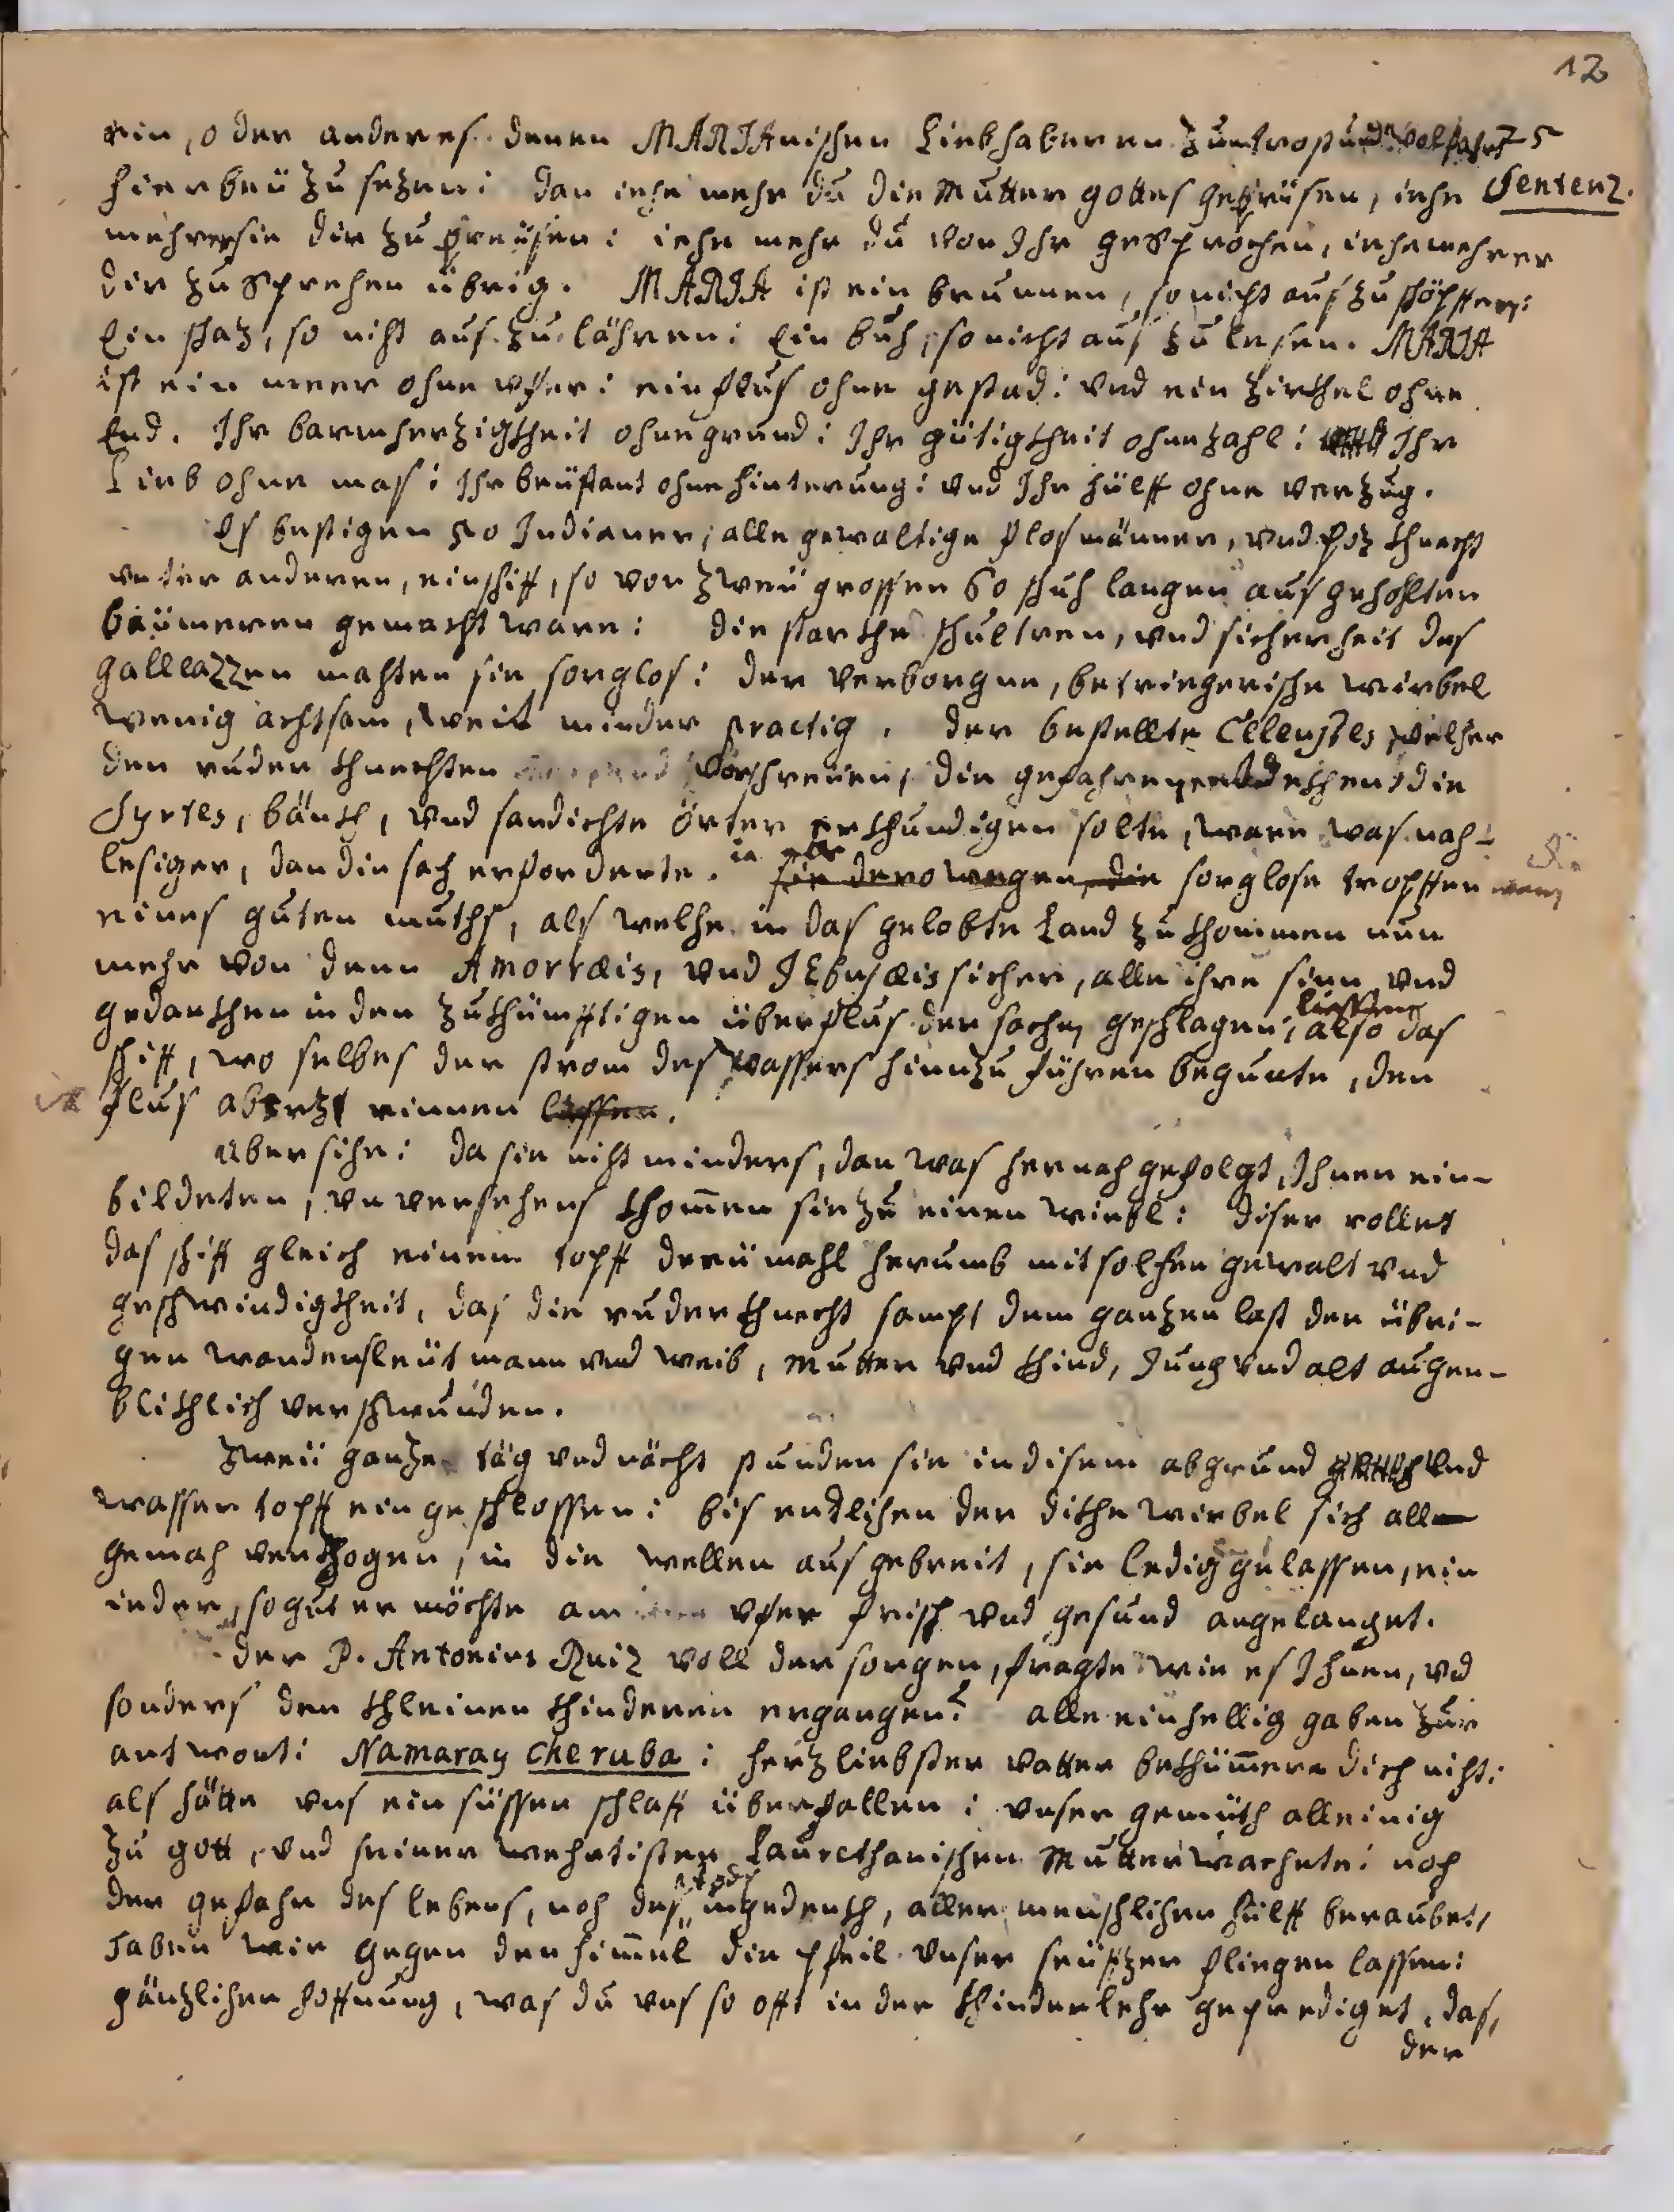 12
ein, oder anderes denen MARIAnischen Liebhaberen zum trost und wolfahrt
hierbeÿ zu sezen: dan iehe mehr du die Mutter gottes gebrisen, iehe Sentenz.
mehrer sie dir zu preÿsen: iehe mehr du von Ihr gesprochen, iehe mehrer
dir zu sprehen übrig. MARIA ist ein brunnen, so nicht aus zu shöpffen:
Ein shaz, so niht aus zu lähren: Ein buh, so nicht aus zu lesen. MARIA
ist ein meer ohne vfer: ein flus ohne gestad: vnd ein Zirkhel ohne
End. Ihr barmherzigkheit ohne grund: Ihr gütigkheit ohne zahl: Ihr
Lieb ohne mas: Ihr beÿstant ohne hinterung: vnd Ihr hülff ohne verzug.
Es bestigen 70 Indianer, alle gewaltige flosmänner, vnd khnecht
vnter anderen, ein shiff, so von zweÿ grossen 60 shuh langen aus geholten
bäümeren gemacht ware: die starkhe shultren, vnd sicherheit des
galleazzen mahten sie sorglos: der verborgne, betriegerishe wirbel
wenig achtsam, weit minder practig. der bestellte Celeustes welher
den ruder khnechten vorshreÿen, die gefahren entdekhen die
Syrtes, bänkh, vnd sandichte örter erkhundigen solte, ware was nah-
lesiger, dan die sach erforderte. sie derowegen, die sorglose tropffen
eines guten muths, als welhe in das gelobte Land zu khommen nun
mehr von denn Amorræis, vnd JEbusæis sicher, alle ihre sinn vnd
gedankhen in den zukhümfftigen überflus der sachen geshlagen, liessen also das
shiff, wo selbes der strom des wassers hinzu führen begunte, den
flus abwerts rinnen lassen.
Aber sihe: da sie niht minders, dan was hernah gefolgt, Ihnen ein-
bildeten, vnversehens khom̄en sie zu einen wirbl: diser rollet
das shiff gleich einem topff dreÿ mahl herumb mit solhen gewalt vnd
geshwindigkheit, das die ruderkhnecht sampt dem ganzen last der übri-
gen wandersleüt mann vnd weib, Mutter vnd khind, Jung vnd alt augen-
blikhlich vershwunden.
Zweÿ ganze täg vnd nächt stunden sie in disem abgrund vnd
wasser topff ein geshlossen: bis entlihen der dikhe wirbel sich alle
gemah verzogen, in die wellen aus gebreit, sie ledig gelassen, ein
ieder, so gut er möchte am vfer frish vnd gesund angelanget.
der P. Antonius Ruiz voll der sorgen, fragte wie es Ihnen, vnd
sonders den khleinen khinderen ergangen? alle einhellig gaben zur
antwort: Namaray cheruba: herzliebster vatter bekhüm̄ere dich niht:
als hätte vns ein süsser shlaff überfallen: vnser gemüth alleinig
zu gott, vnd seiner wehrtisten Laurethanishen Mutter wachete: noh
der gefahr des lebens, noh des todts ingedenkh, aller menshlihen hülff beraubet,
haben wir gegen den him̄el die pfeil vnser seüfzer fliegen lassen:
gänzliher hoffnung, was du vns so offt in der khinderlehr geprediget, das,
der